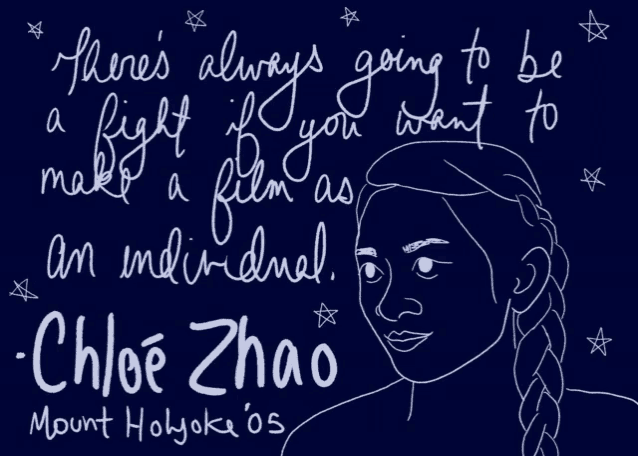 There's always going to be
a fight if you want to
make a film as
an individual.
- Chloé Zhao
Mount Holyoke '05